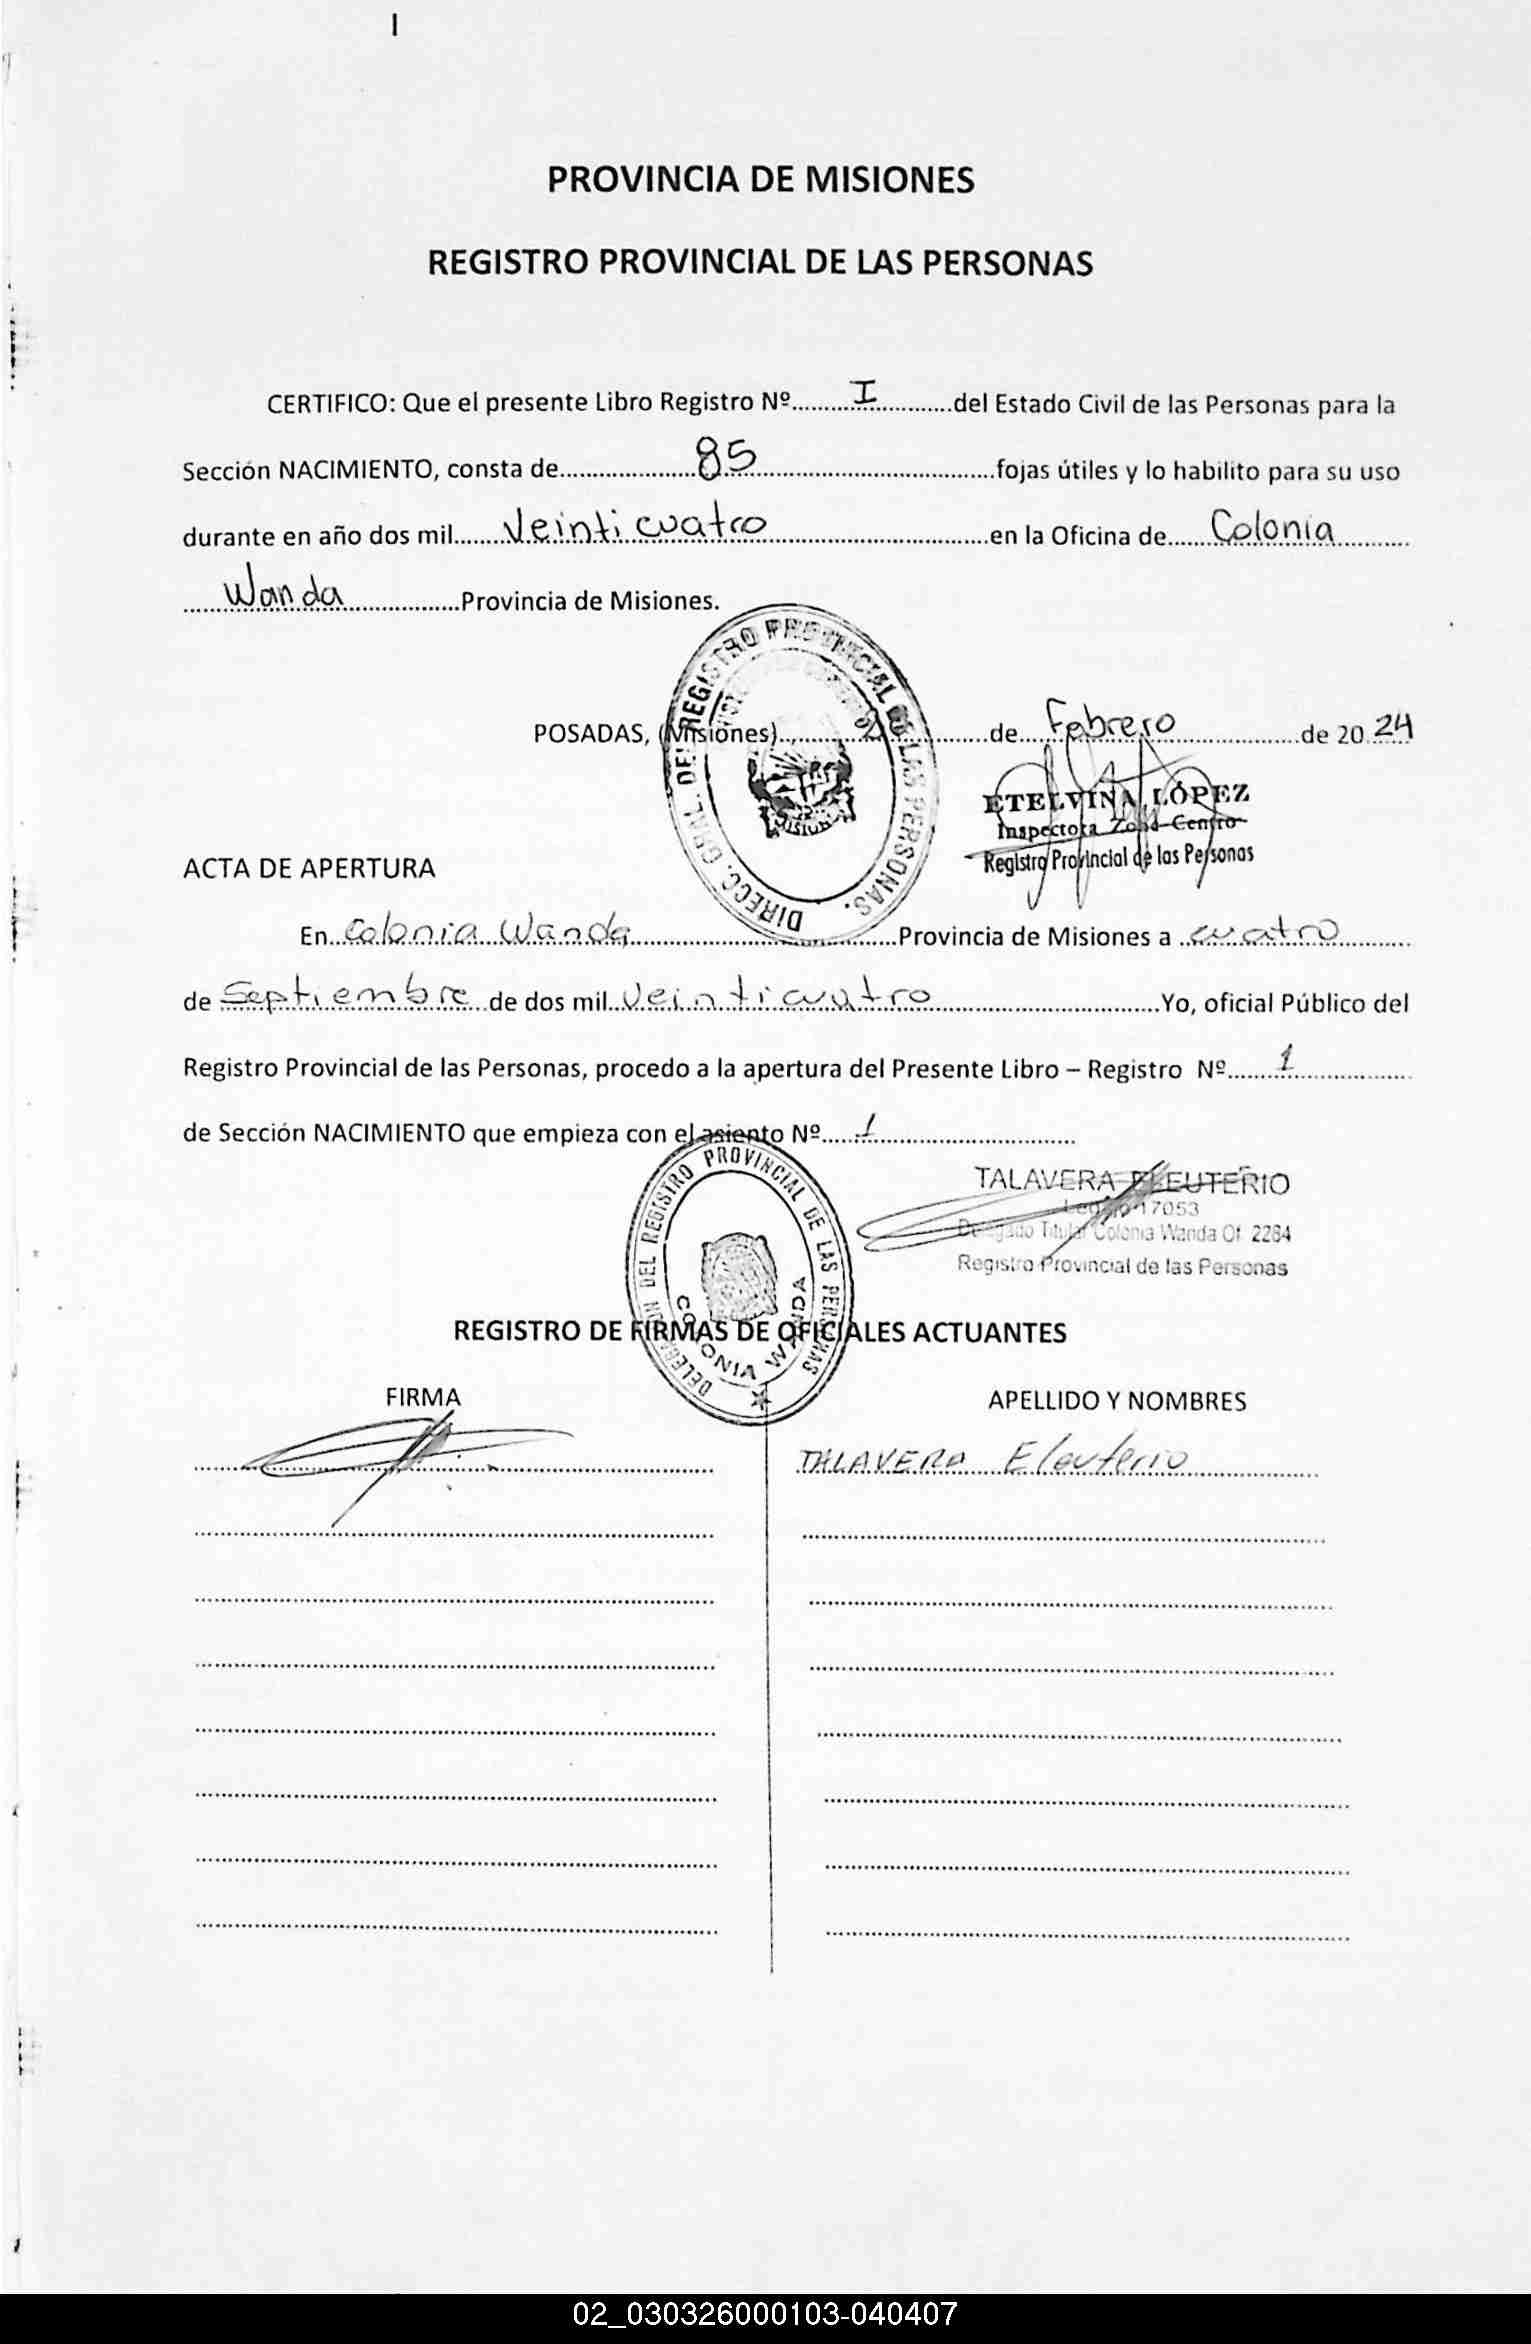 PROVINCIA DE MISIONES
REGISTRO PROVINCIAL DE LAS PERSONAS
CERTIFICO: Que el presente Libro Registro Nº............I............del Estado Civil de las Personas para la
Sección NACIMIENTO, consta de....................85....................fojas útiles y lo habilito para su uso
durante en año dos mil........Veinti cuatro..............................en la Oficina de......Colonia..........
......Wanda.................Provincia de Misiones.
POSADAS, (Misiones)....................de....Febrero................de 20.24
DIRECC. GRAL. DEL REGISTRO PROVINCIAL DE LAS PERSONAS.
MISIONES
ETELVINA LÓPEZ
Inspectora Zona Centro
Registro Provincial de las Personas
ACTA DE APERTURA
En..Colonia Wanda..............................Provincia de Misiones a ..cuatro..........
de Septiembre de dos mil..Veinticuatro..............................Yo, oficial Público del
Registro Provincial de las Personas, procedo a la apertura del Presente Libro – Registro Nº........1................
de Sección NACIMIENTO que empieza con el asiento Nº......1..............................
TALAVERA ELEUTERIO
Legajo 17053
Delegado Titular Colonia Wanda Of. 2284
Registro Provincial de las Personas
DELEGACION DEL REGISTRO PROVINCIAL DE LAS PERSONAS
COLONIA WANDA
REGISTRO DE FIRMAS DE OFICIALES ACTUANTES
FIRMA APELLIDO Y NOMBRES
TALAVERA Eleuterio
02_030326000103-040407